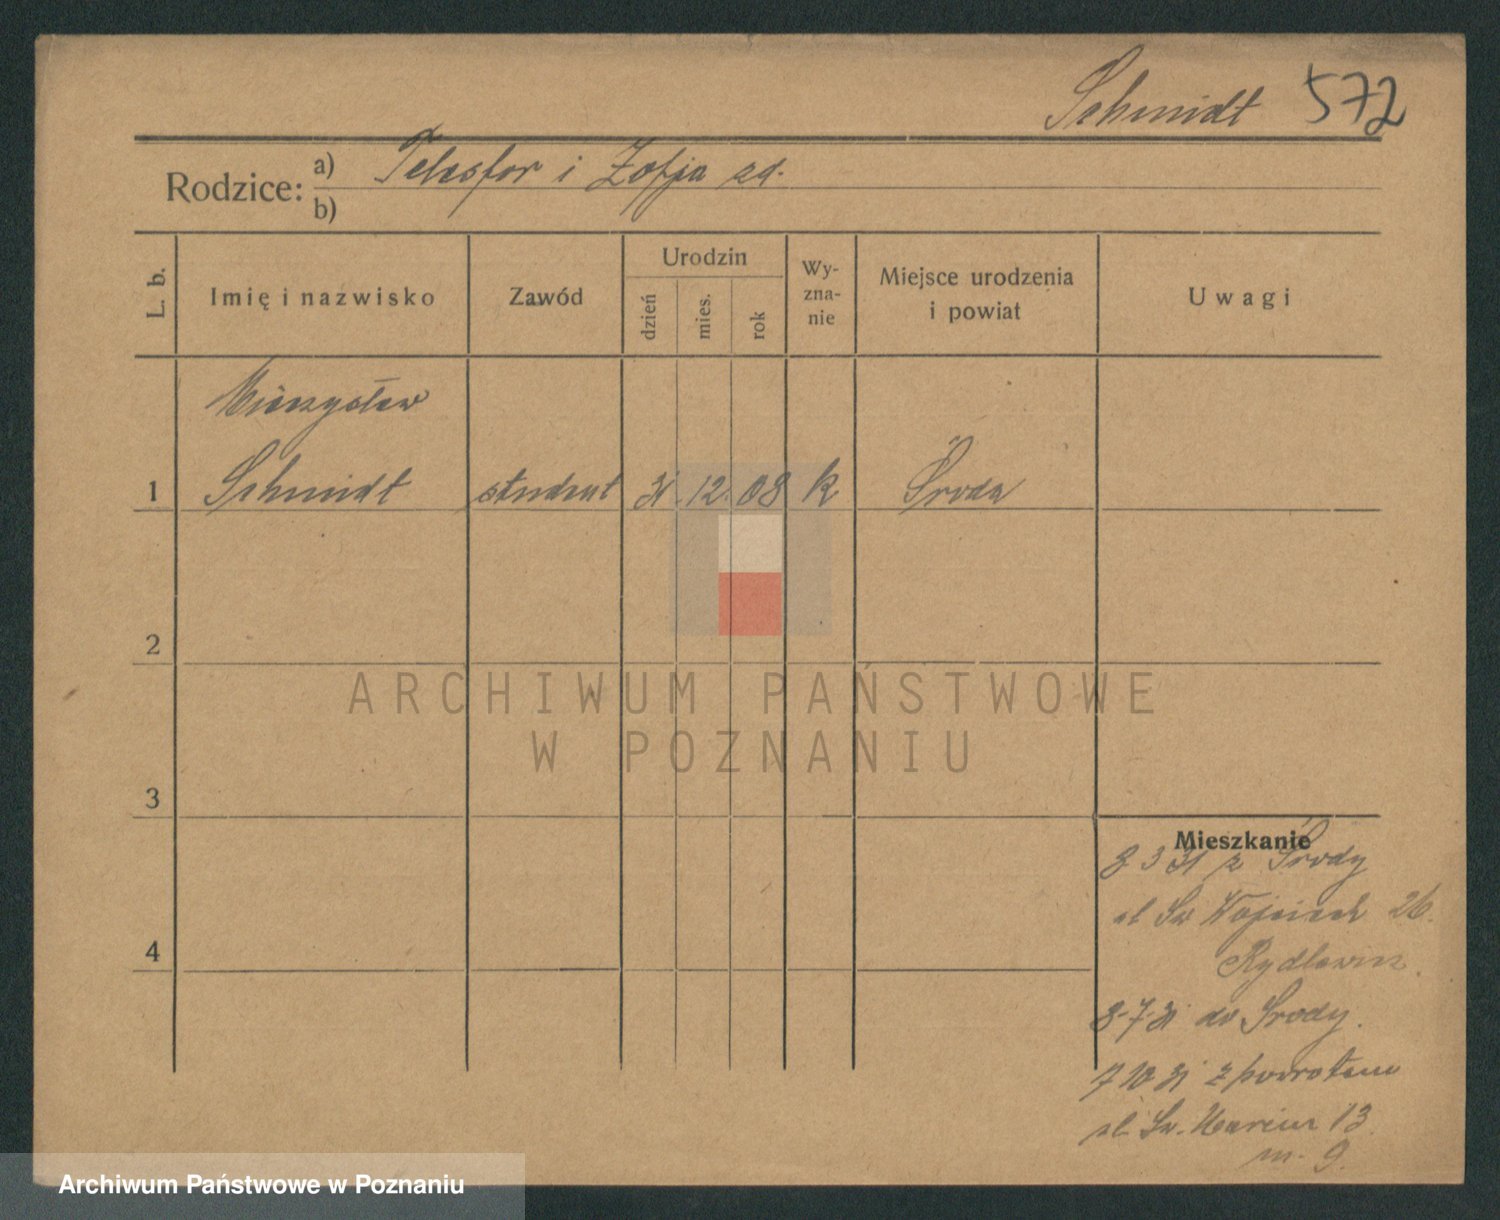 Schmidt 572
Rodzice: a) Telesfor i Zofja
b)
L. b.
Imię i nazwisko
Zawód
Urodzin
dzień
mies.
rok
Wy-
zna-
nie
Miejsce urodzenia
i powiat
Uwagi
Mieczysław
1 Schmidt student 31. 12. 08 k Środa
2
3
4
ARCHIWUM PAŃSTWOWE
W POZNANIU
Mieszkanie
8 3 31 z Środy
ul Św Wojciech 26.
8-7-31 do Środy.
7 10 31 z powrotem
ul. Św. Marcin 13
m. 9.
Archiwum Państwowe w Poznaniu